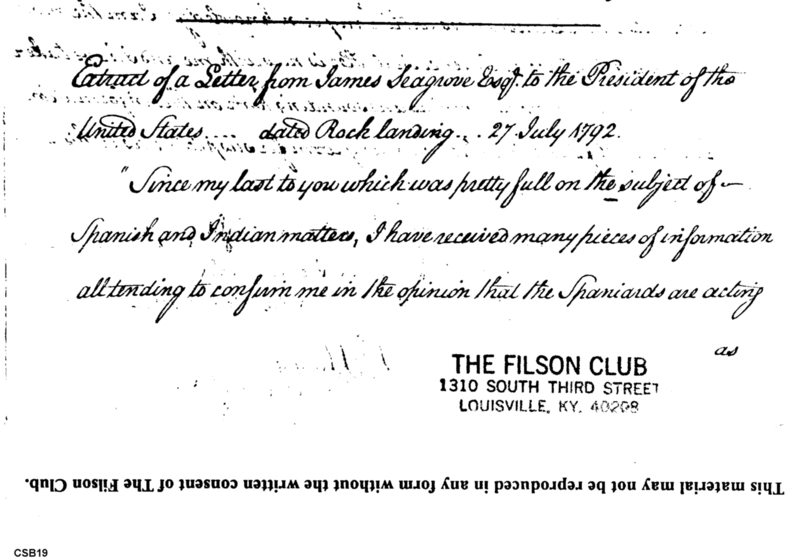 Extract of a Letter from James Seagrove Esqr. to the President of the
United States.... dated Rock landing... 27 July 1792.
"Since my last to you which was pretty full on the subject of
Spanish and Indian matters, I have received many pieces of information
all tending to confirm me in the opinion that the Spaniards are acting
as
THE FILSON CLUB
1310 SOUTH THIRD STREET
LOUISVILLE, KY. 40208
This material may not be reproduced in any form without the written consent of The Filson Club.
CSB19